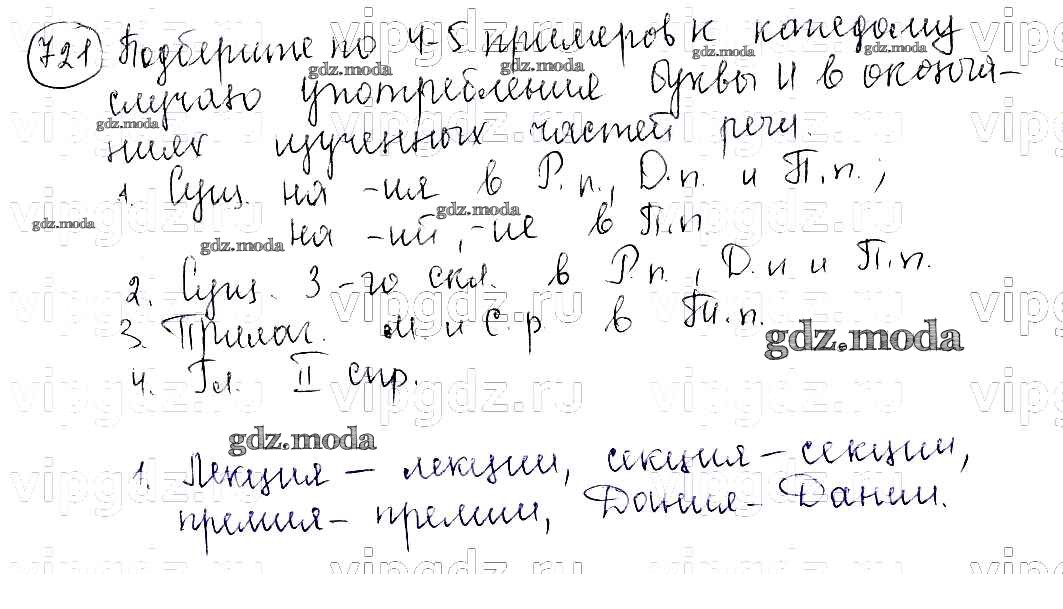 721 Подберите по 4-5 примеров к каждому
случаю употребления буквы и в оконча-
ниях изученных частей речи.
1. Сущ. на -ия в Р.п., Д.п. и П.п.;
на -ий, -ие в П.п.
2. Сущ. 3-го скл. в Р.п., Д.п и П.п.
3. Прилаг. м. и с.р в Тв.п.
4. Гл. II спр.
gdz.moda
gdz.moda
1. Лекция – лекции, секция – секции,
премия – премии, Дания – Дании.